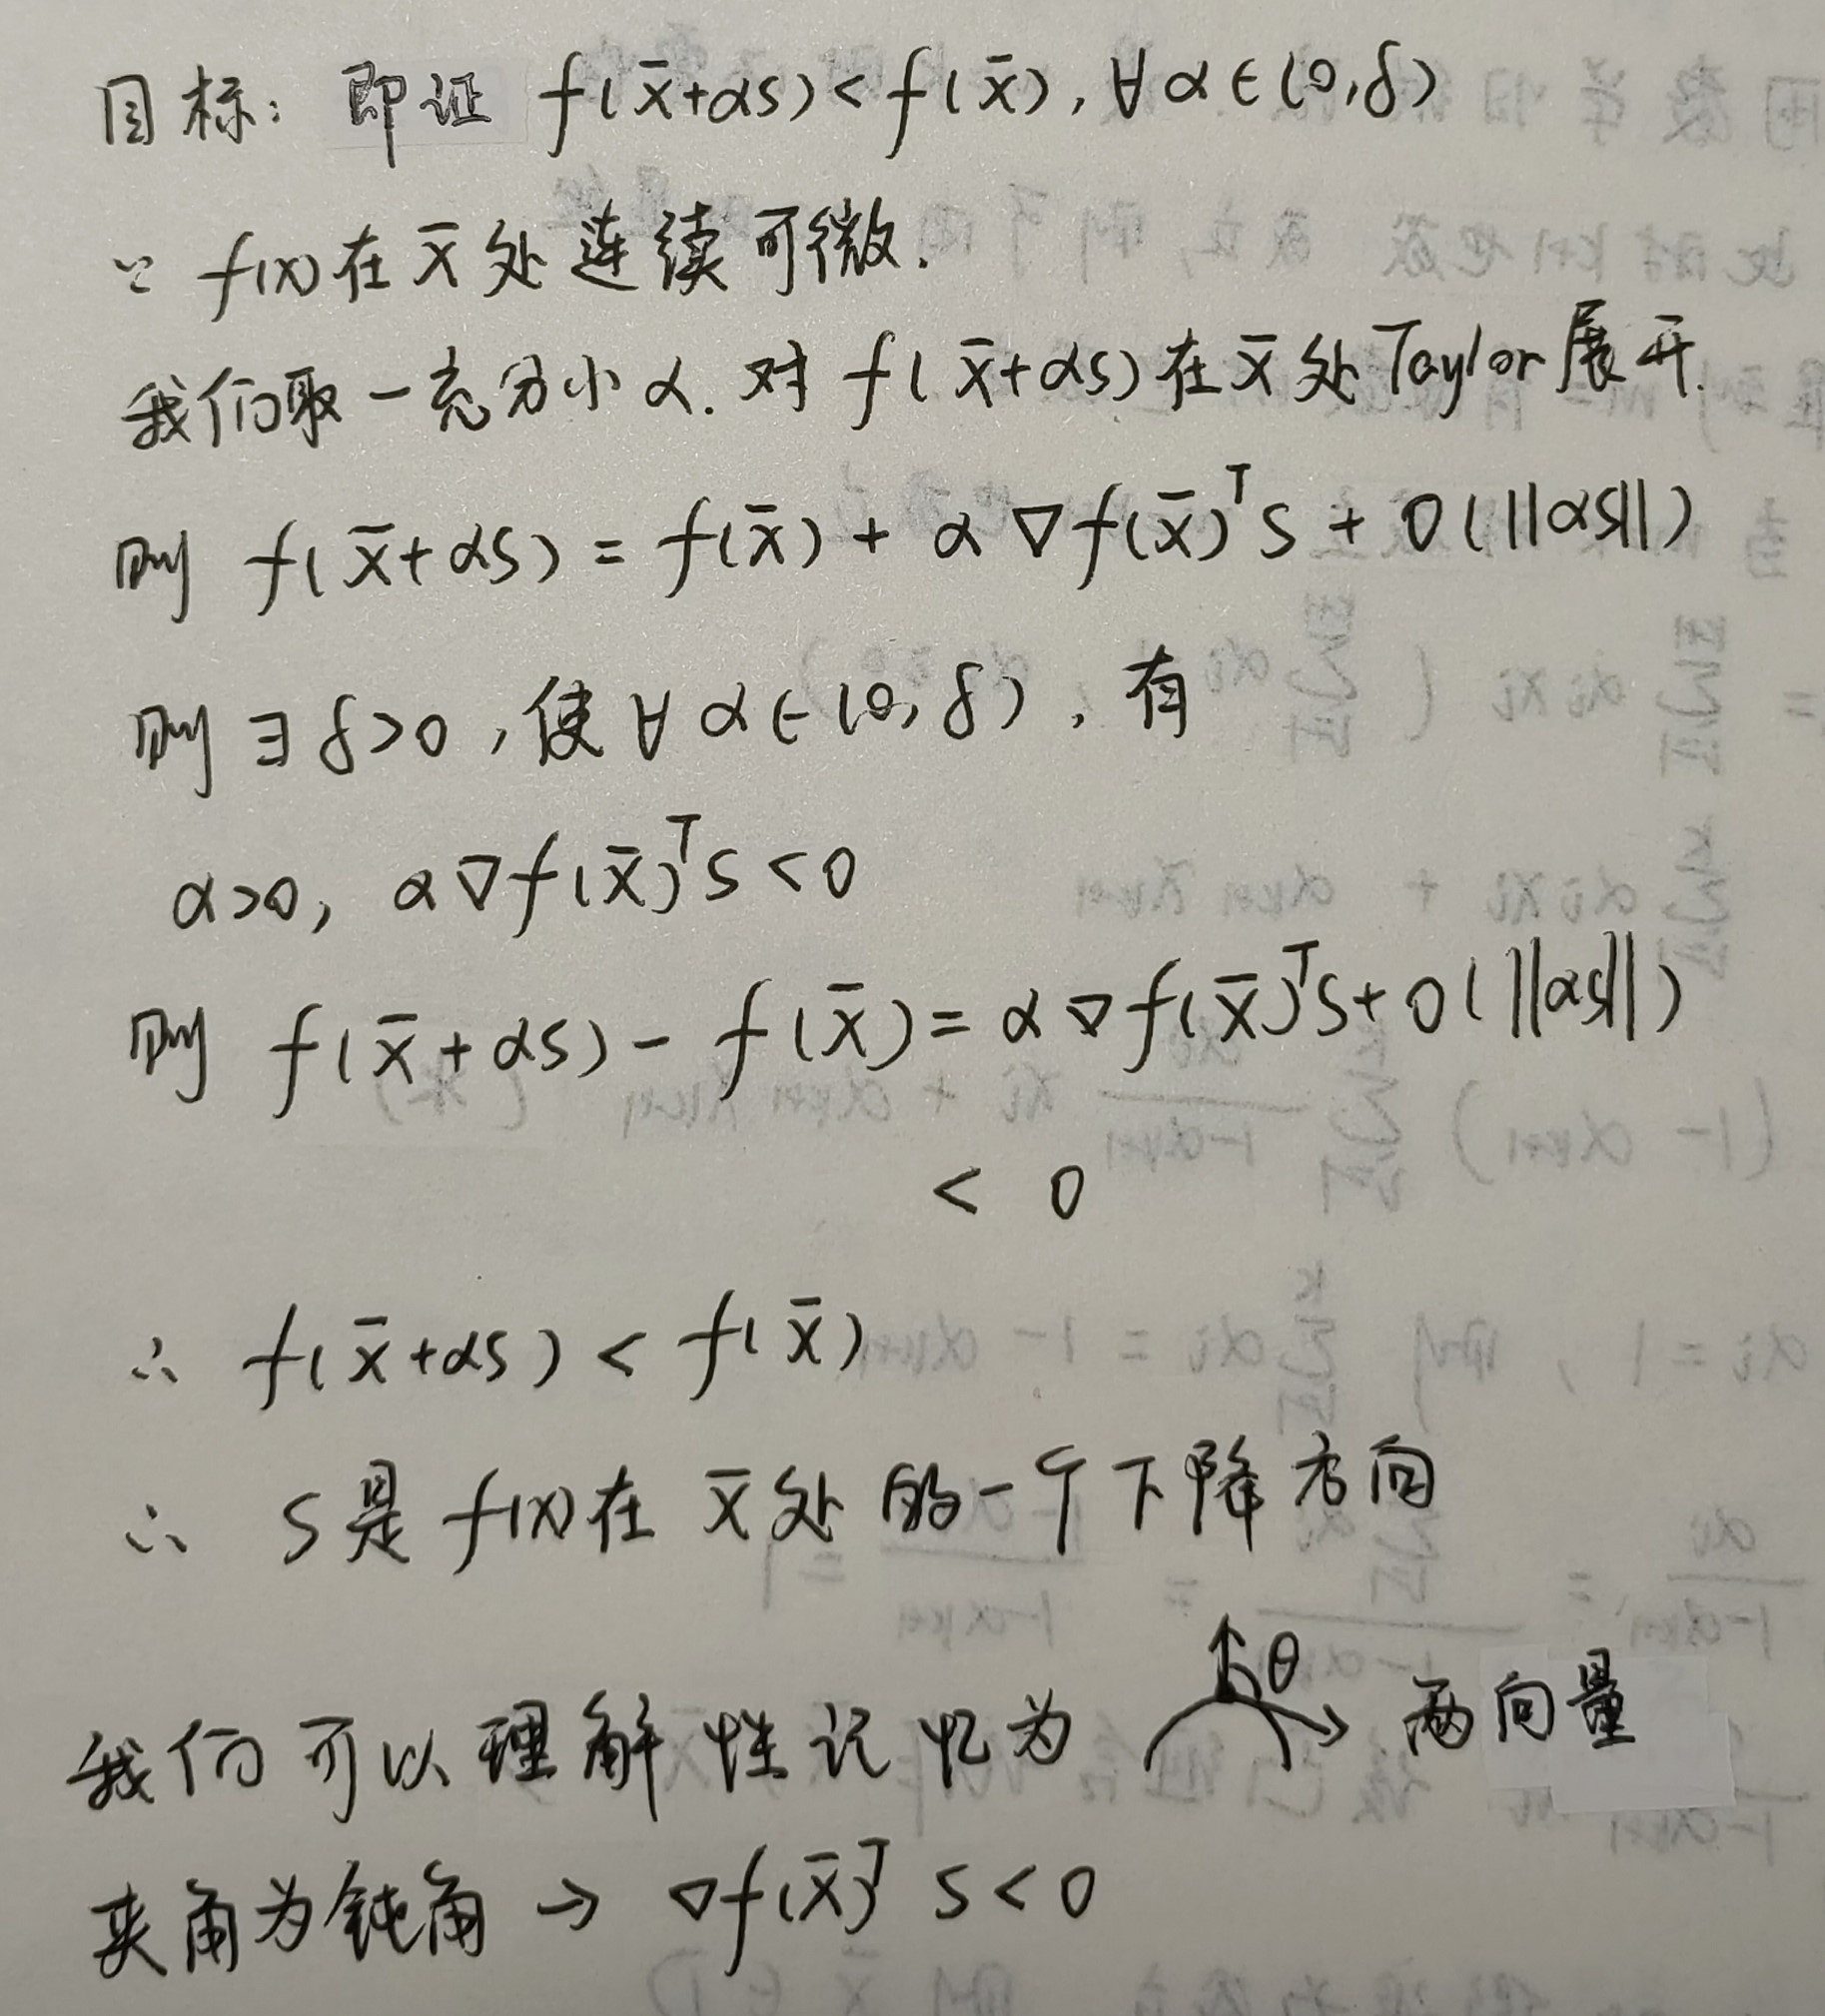 目标: 即证 f(x̄+αs)<f(x̄), ∀α∈(0,δ)
∵ f(x)在x̄处连续可微.
我们取一充分小α. 对 f(x̄+αs)在x̄处Taylor展开.
则 f(x̄+αs) = f(x̄) + α∇f(x̄)ᵀs + o(||αs||)
则∃δ>0, 使∀α∈(0,δ), 有
α>0, α∇f(x̄)ᵀs<0
则 f(x̄+αs) - f(x̄) = α∇f(x̄)ᵀs + o(||αs||)
< 0
∴ f(x̄+αs) < f(x̄)
∴ s是f(x)在x̄处的一个下降方向
我们可以理解性记忆为 θ 两向量
夹角为钝角 → ∇f(x̄)ᵀs<0